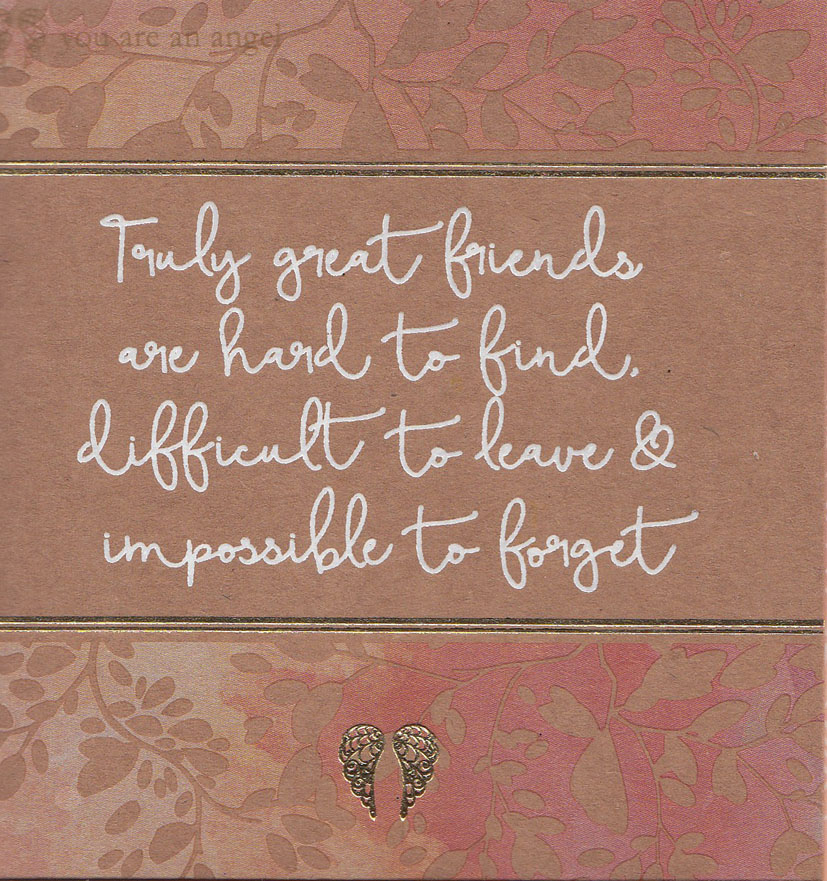 you are an angel
Truly great friends
are hard to find,
difficult to leave &
impossible to forget